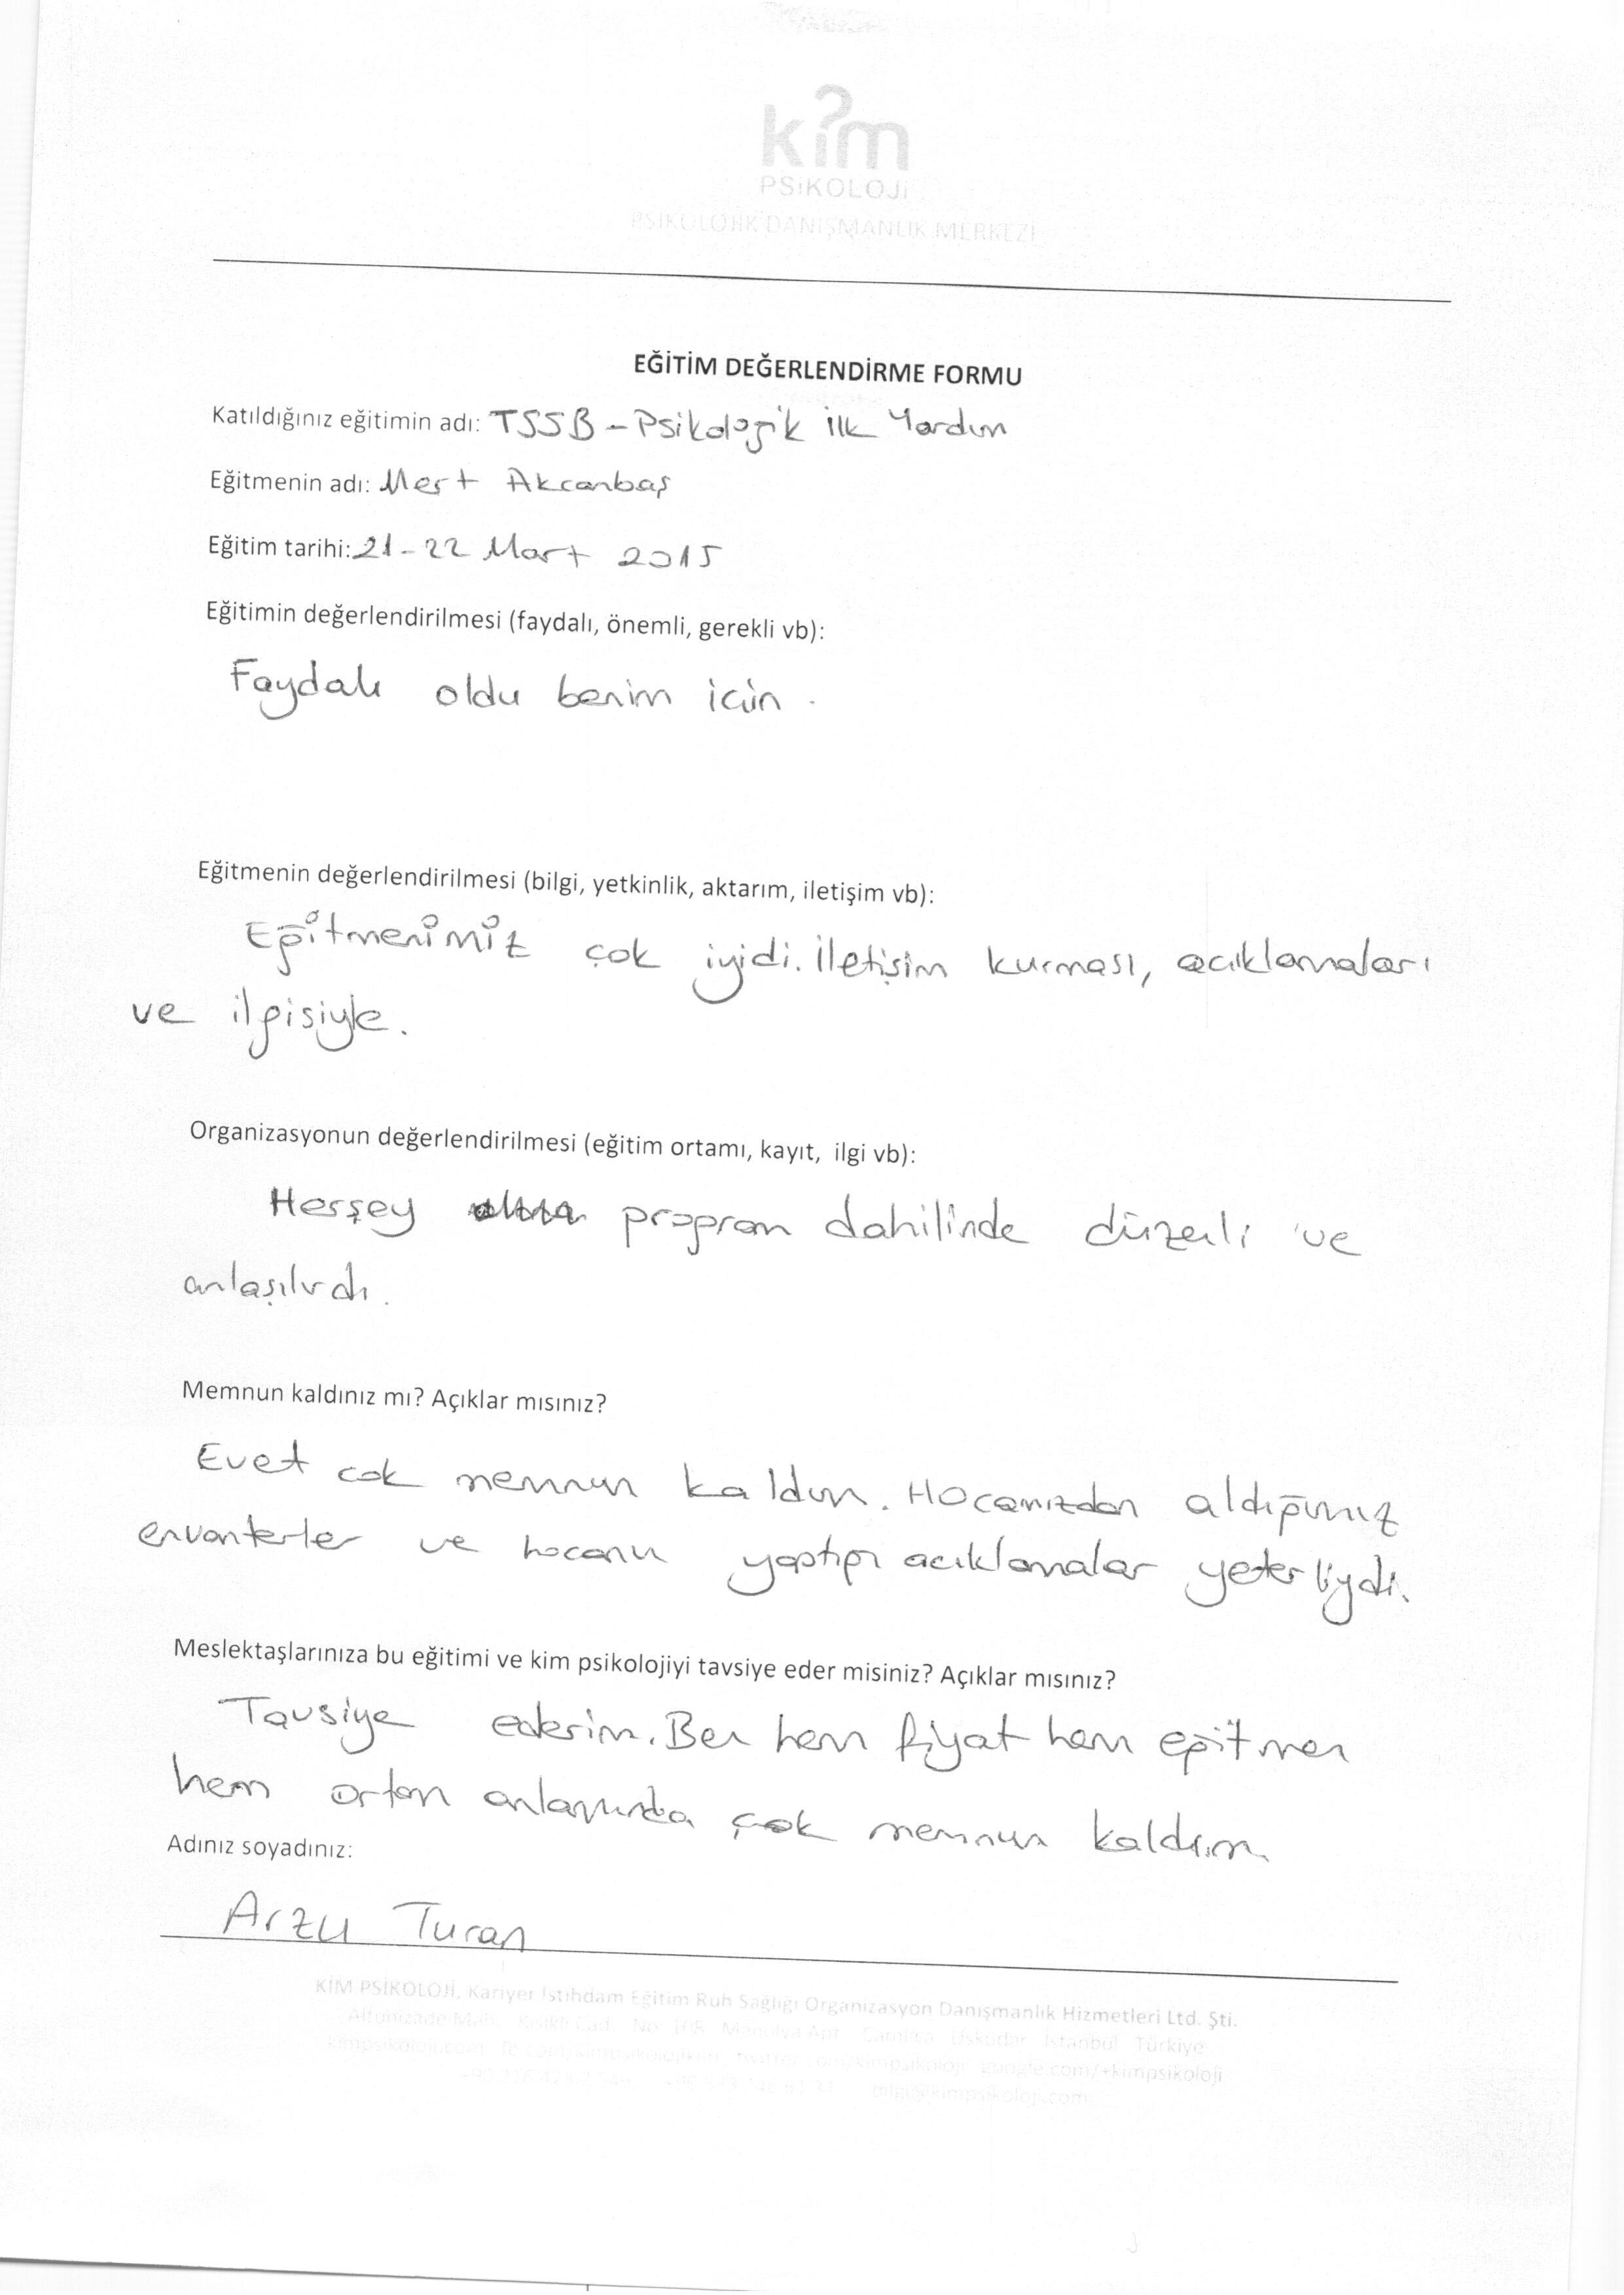 kim
PSİKOLOJİ
PSİKOLOJİK DANIŞMANLIK MERKEZİ
EĞİTİM DEĞERLENDİRME FORMU
Katıldığınız eğitimin adı: TSSB - Psikolojik İlk Yardım
Eğitmenin adı: Mert Akcanbaş
Eğitim tarihi: 21-22 Mart 2015
Eğitimin değerlendirilmesi (faydalı, önemli, gerekli vb):
Faydalı oldu benim için.
Eğitmenin değerlendirilmesi (bilgi, yetkinlik, aktarım, iletişim vb):
Eğitmenimiz çok iyidi. İletişim kurması, acıklamaları
ve ilgisiyle.
Organizasyonun değerlendirilmesi (eğitim ortamı, kayıt, ilgi vb):
Herşey program dahilinde düzenli ve
anlaşılırdı.
Memnun kaldınız mı? Açıklar mısınız?
Evet cok memnun kaldım. Hocamızdan aldığımız
envanterler ve hocanın yaptığı acıklamalar yeterliydi.
Meslektaşlarınıza bu eğitimi ve kim psikolojiyi tavsiye eder misiniz? Açıklar mısınız?
Tavsiye ederim. Ben hem fiyat hem eğitmen
hem ortam anlamında çok memnun kaldım.
Adınız soyadınız:
Arzu Turan
KİM PSİKOLOJİ, Kariyer İstihdam Eğitim Ruh Sağlığı Organizasyon Danışmanlık Hizmetleri Ltd. Şti.
Altunizade Mah. Kısıklı Cad. No: 108 Apt. Çamlıca Üsküdar İstanbul Türkiye
kimpsikoloji.com twitter.com/kimpsikoloji google.com/+kimpsikoloji
bilgi@kimpsikoloji.com